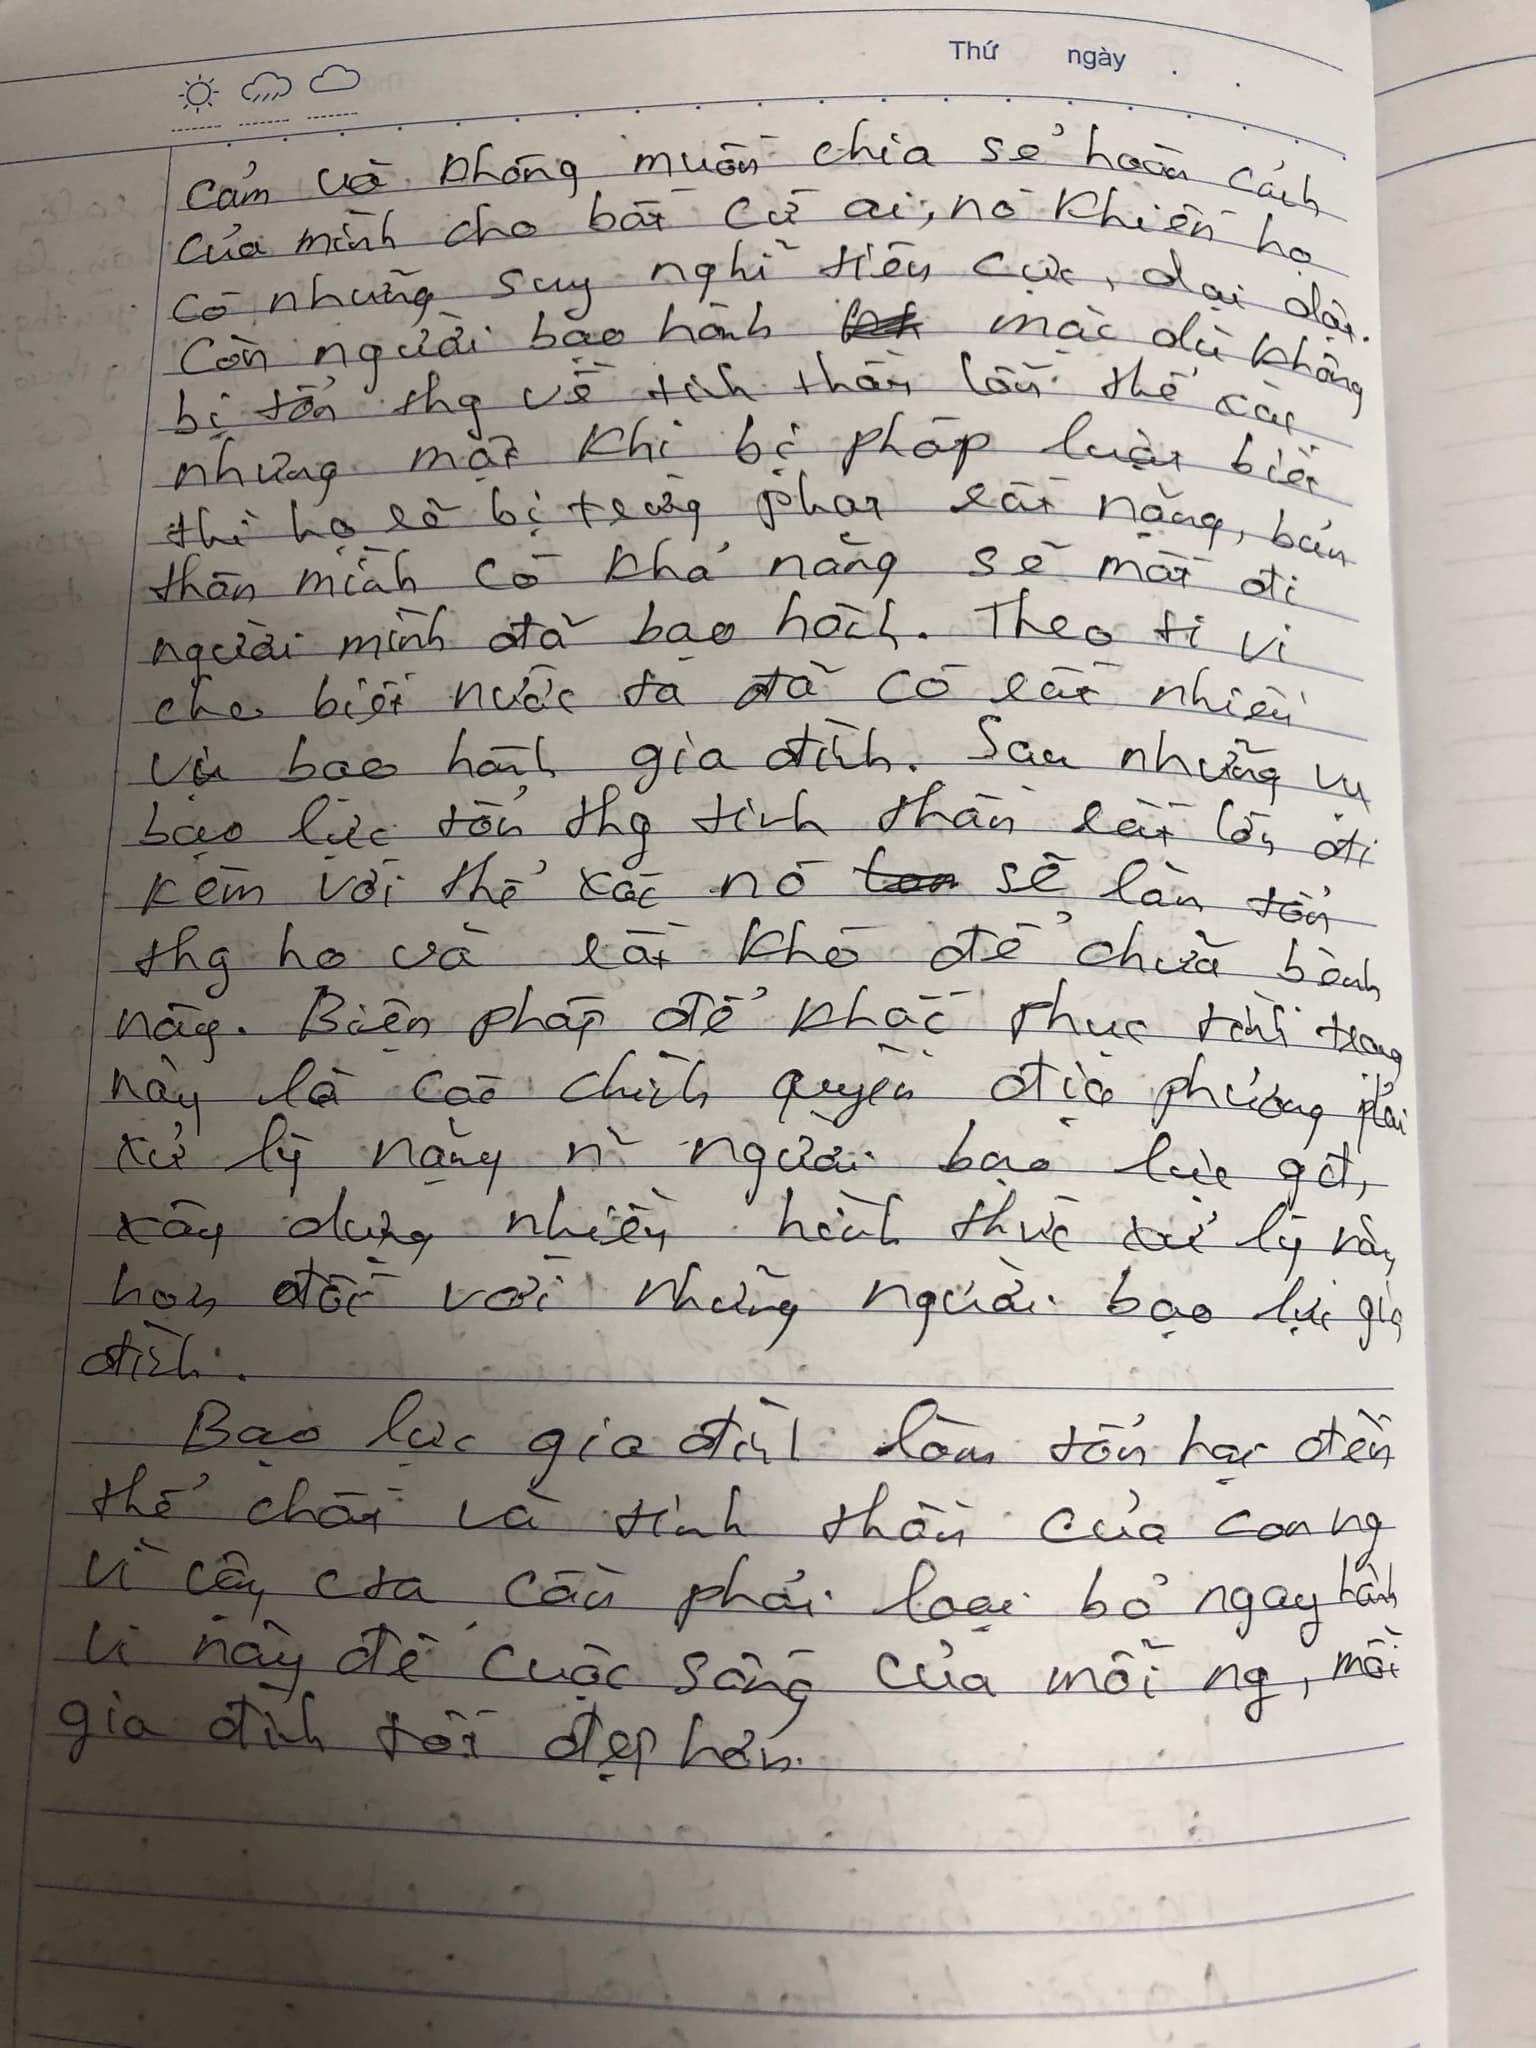 Thứ ngày
cảm và không muốn chia sẻ hoàn cảnh
của mình cho bất cứ ai, nó khiến họ
có những suy nghĩ tiêu cực, dại dột.
Còn người bạo hành mặc dù không
bị tổn thg về tinh thần lẫn thể xác
nhưng một khi bị pháp luật biết
thì họ sẽ bị trừng phạt rất nặng, bản
thân mình có khả năng sẽ mất đi
người mình đã bạo hành. Theo ti vi
cho biết nước ta đã có rất nhiều
vụ bạo hành gia đình. Sau những vụ
bạo lực tổn thg tinh thần rất lớn đi
kèm với thể xác nó sẽ làm tổn
thg họ và rất khó để chữa bệnh
này. Biện pháp để khắc phục tình trạng
này là các chính quyền địa phương phải
xử lý nặng n~ người bạo lực gđ,
xây dựng nhiều hình thức xử lý nặng
hơn đối với những người bạo lực gia
đình.
Bạo lực gia đình làm tổn hại đến
thể chất và tinh thần của con ng
vì vậy cta cần phải loại bỏ ngay hành
vi này để cuộc sống của mỗi ng, mỗi
gia đình tốt đẹp hơn.